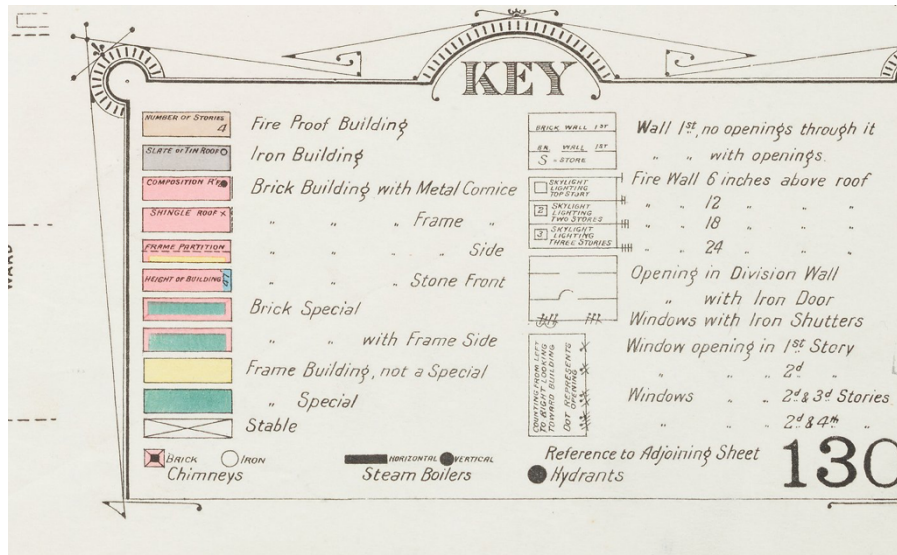 KEY
NUMBER OF STORIES 4 Fire Proof Building
SLATE or TIN ROOF Iron Building
COMPOSITION R'F Brick Building with Metal Cornice
SHINGLE ROOF x " " " Frame "
FRAME PARTITION " " " Side
HEIGHT OF BUILDING " " " Stone Front
Brick Special
" " with Frame Side
Frame Building, not a Special
" Special
Stable
BRICK IRON
Chimneys
HORIZONTAL VERTICAL
Steam Boilers
BRICK WALL 1ST Wall 1st, no openings through it
BR. WALL 1ST " " with openings.
S - STORE
SKYLIGHT LIGHTING TOP STORY Fire Wall 6 inches above roof
" " 12 " " "
2 SKYLIGHT LIGHTING TWO STORES " " 18 " " "
3 SKYLIGHT LIGHTING THREE STORIES " " 24 " " "
Opening in Division Wall
" with Iron Door
Windows with Iron Shutters
COUNTING FROM LEFT
TO RIGHT LOOKING
TOWARD BUILDING
DOT REPRESENTS
OPENING
Window opening in 1st Story
" " " 2d "
Windows " " 2d & 3d Stories
" " " 2d & 4th "
Reference to Adjoining Sheet 130
Hydrants